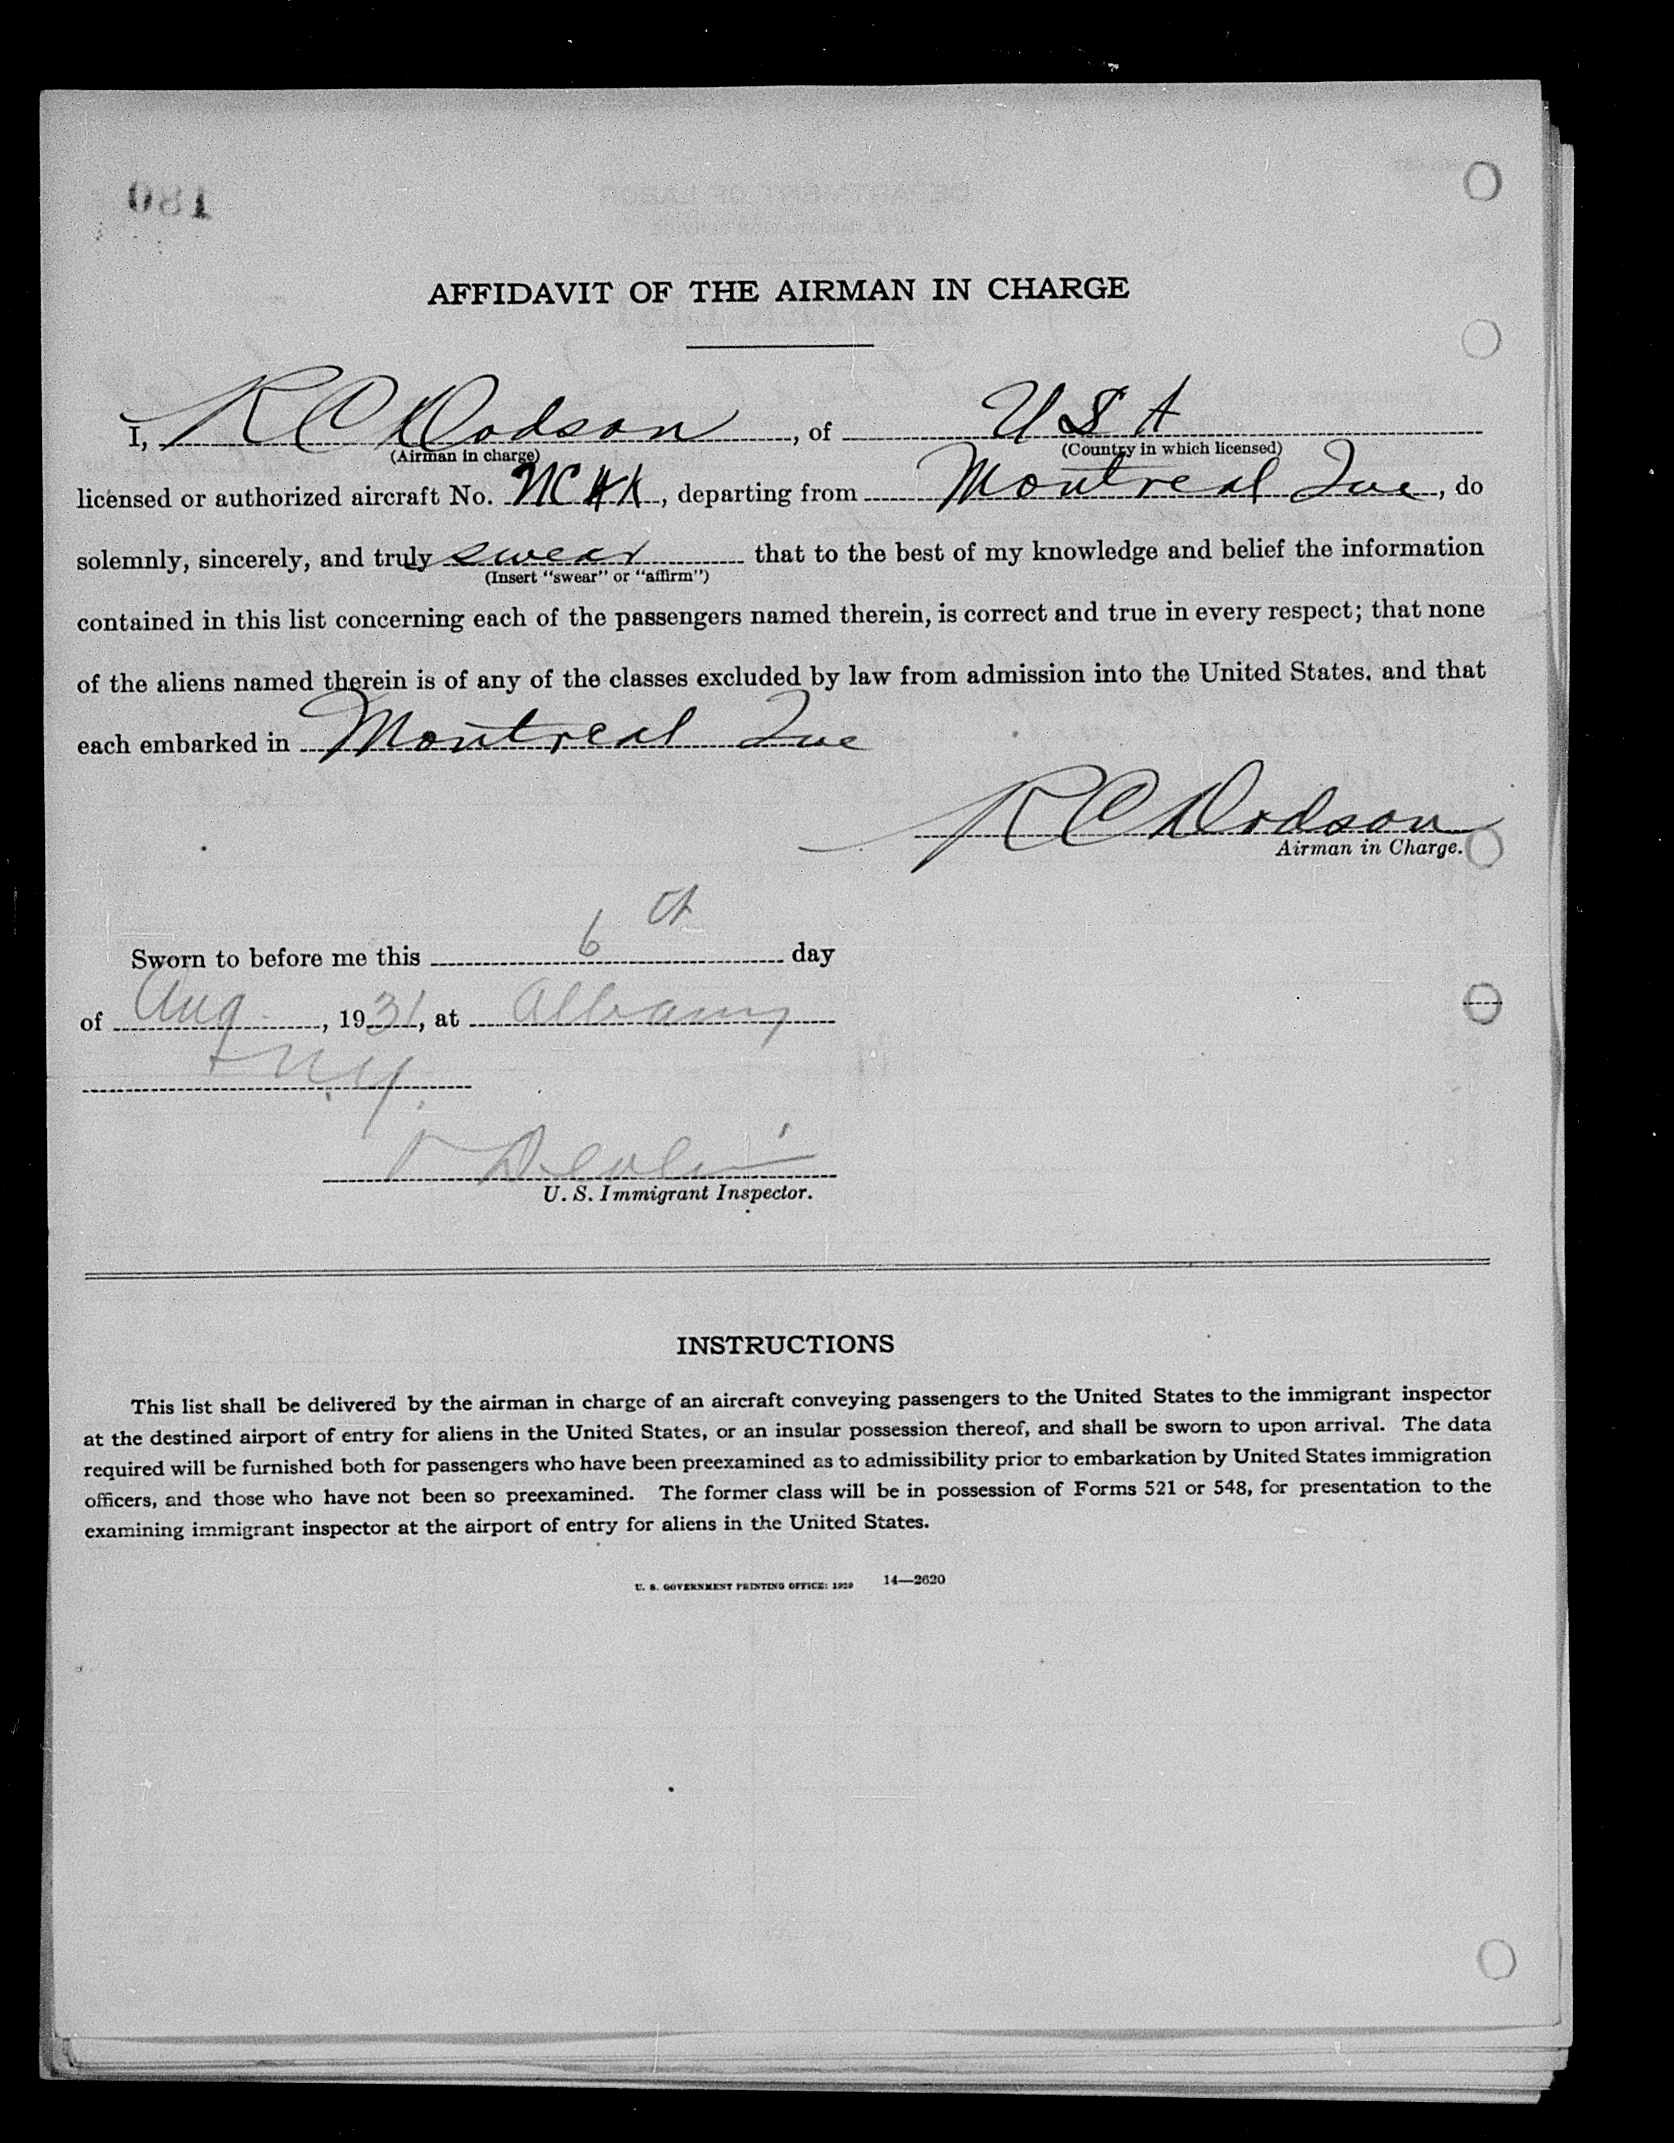 180
AFFIDAVIT OF THE AIRMAN IN CHARGE
I, R C Dodson, of U S A
(Airman in charge) (Country in which licensed)
licensed or authorized aircraft No. , departing from Montreal Que, do
solemnly, sincerely, and truly swear that to the best of my knowledge and belief the information
(Insert "swear" or "affirm")
contained in this list concerning each of the passengers named therein, is correct and true in every respect; that none
of the aliens named therein is of any of the classes excluded by law from admission into the United States, and that
each embarked in Montreal Que
R C Dodson
Airman in Charge.
Sworn to before me this 6th day
of Aug, 1931, at Albany
N.Y.
U. S. Immigrant Inspector.
INSTRUCTIONS
This list shall be delivered by the airman in charge of an aircraft conveying passengers to the United States to the immigrant inspector
at the destined airport of entry for aliens in the United States, or an insular possession thereof, and shall be sworn to upon arrival. The data
required will be furnished both for passengers who have been preexamined as to admissibility prior to embarkation by United States immigration
officers, and those who have not been so preexamined. The former class will be in possession of Forms 521 or 548, for presentation to the
examining immigrant inspector at the airport of entry for aliens in the United States.
U. S. GOVERNMENT PRINTING OFFICE: 1929 14—2620